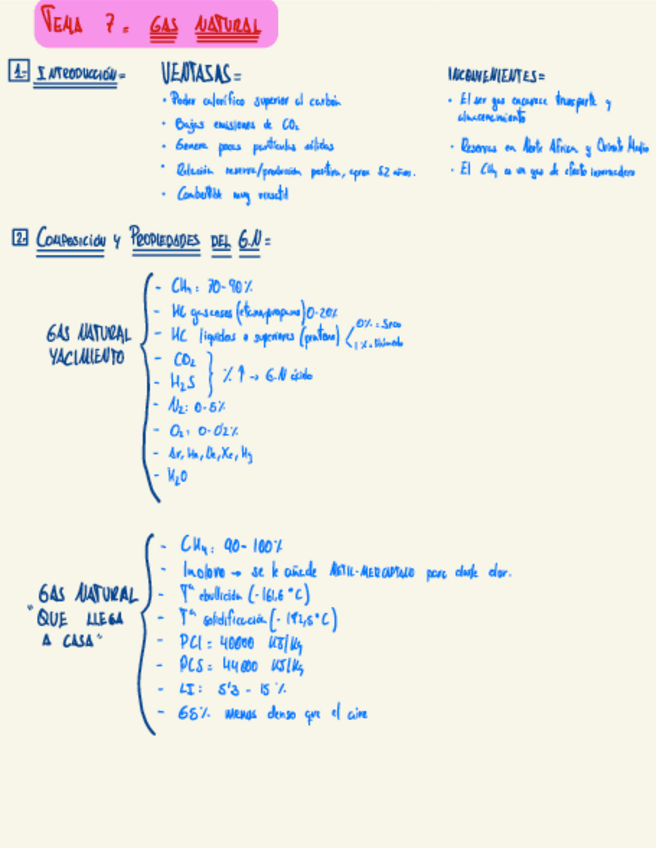 TEMA 7= GAS NATURAL
1- INTRODUCCIÓN=
VENTAJAS=
· Poder calorífico superior al carbón
· Bajas emisiones de CO₂
· Genera pocas partículas sólidas
· Relación reserva/producción positiva, aprox 52 años.
· Combustible muy versátil
INCONVENIENTES=
· El ser gas encarece transporte y
almacenamiento
· Reservas en Norte África y Oriente Medio
· El CH₄ es un gas de efecto invernadero
2- COMPOSICIÓN Y PROPIEDADES DEL G.N=
GAS NATURAL
YACIMIENTO
- CH₄: 70-90%
- HC gaseosos (etano, propano) 0-20%
- HC líquidos o superiores (pentano)
0% = Seco
1% = Húmedo
- CO₂
- H₂S
% ↑ → G.N ácido
- N₂: 0-5%
- O₂: 0-0'2%
- Ar, He, Ne, Xe, Hg
- H₂O
GAS NATURAL
"QUE LLEGA
A CASA"
- CH₄: 90-100%
- Inoloro → se le añade METIL-MERCAPTANO para darle olor.
- Tª ebullición (-161,6 °C)
- Tª solidificación (-182,5 °C)
- PCI = 40000 KJ/Kg
- PCS = 44000 KJ/Kg
- LI: 5'3 - 15 %
- 65% menos denso que el aire